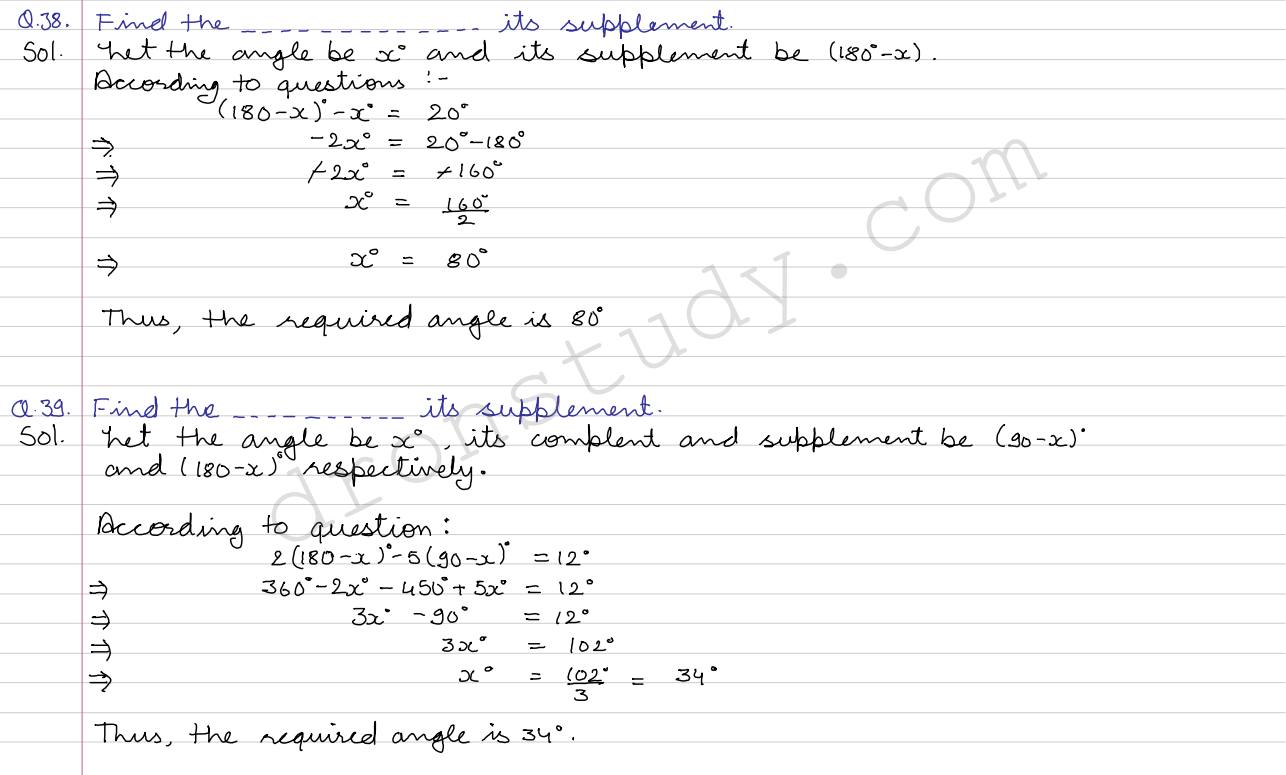 Q.38. Find the _ _ _ _ _ _ _ _ _ _ _ _ _ its supplement.
Sol. Let the angle be x° and its supplement be (180°-x).
According to questions :-
(180-x)°-x° = 20°
⇒ -2x° = 20°-180°
⇒ -2x° = -160°
⇒ x° = 160°/2
⇒ x° = 80°
Thus, the required angle is 80°
Q.39. Find the _ _ _ _ _ _ _ _ _ _ its supplement.
Sol. Let the angle be x°, its complent and supplement be (90-x)°
and (180-x)° respectively.
According to question :
2(180-x)°-5(90-x)° = 12°
⇒ 360°-2x°-450°+5x° = 12°
⇒ 3x° -90° = 12°
⇒ 3x° = 102°
⇒ x° = 102°/3 = 34°
Thus, the required angle is 34°.
dronstudy.com